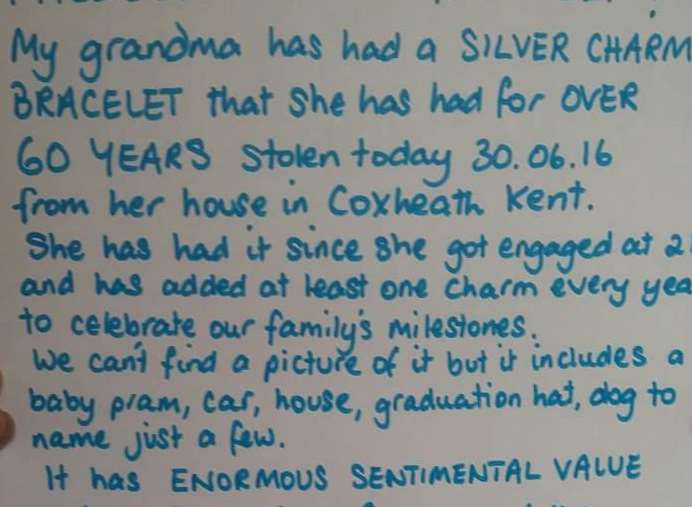 My grandma has had a SILVER CHARM
BRACELET that she has had for OVER
60 YEARS stolen today 30.06.16
from her house in Coxheath Kent.
She has had it since she got engaged at 21
and has added at least one charm every yea
to celebrate our family's milestones.
We can't find a picture of it but it includes a
baby pram, car, house, graduation hat, dog to
name just a few.
It has ENORMOUS SENTIMENTAL VALUE